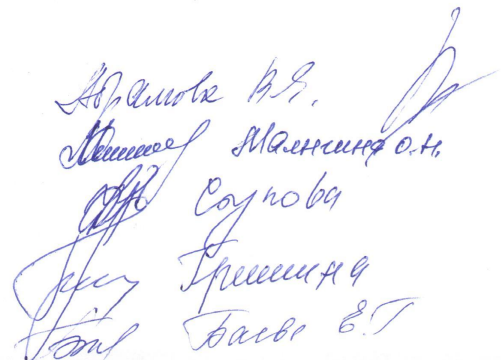 Абрамова В.Я.
Малнгина О.Н.
Соупова
Гришина
Баева Е.Г